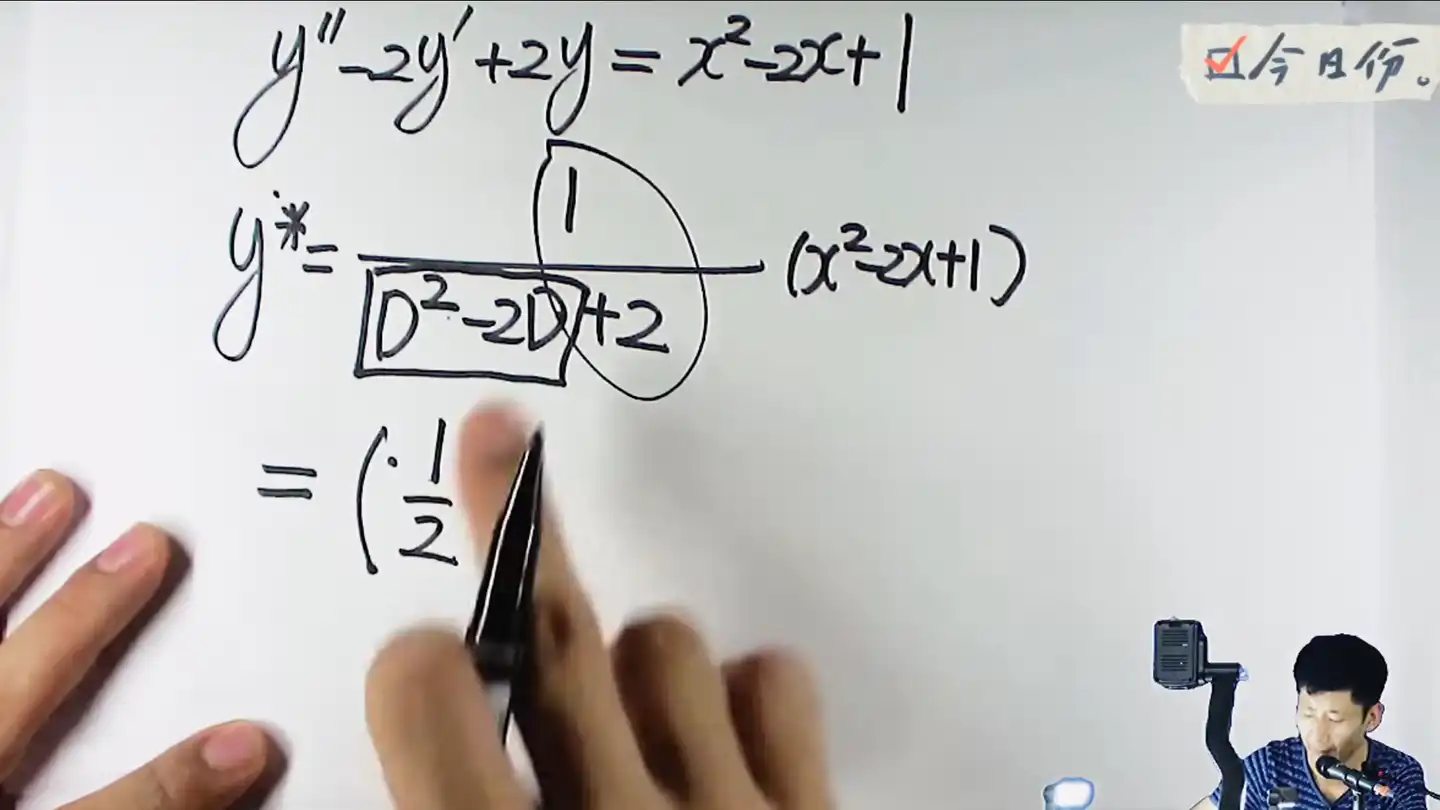 y'' - 2y' + 2y = x² - 2x + 1
今日份。
y* = 1 / (D² - 2D + 2) (x² - 2x + 1)
= ( 1/2